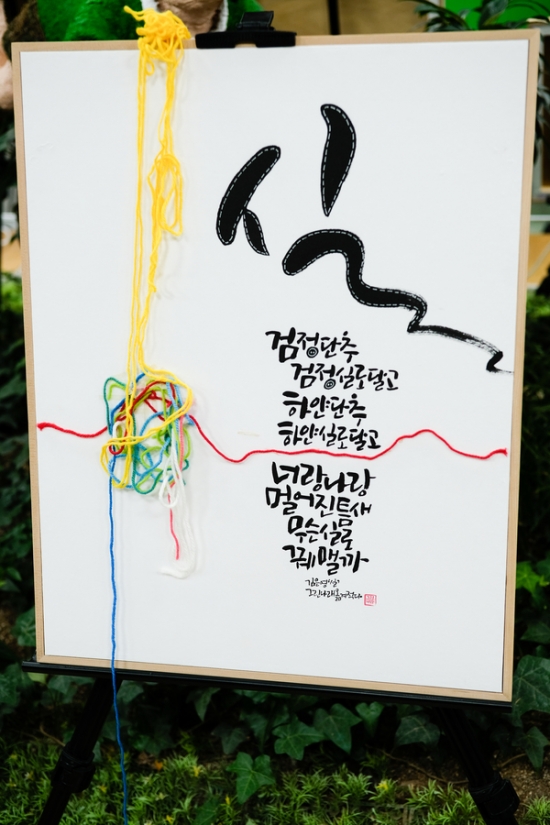 실
검정단추
검정실로달고
하얀단추
하얀실로달고
너랑나랑
멀어진틈새
무슨실로
꿰맬까